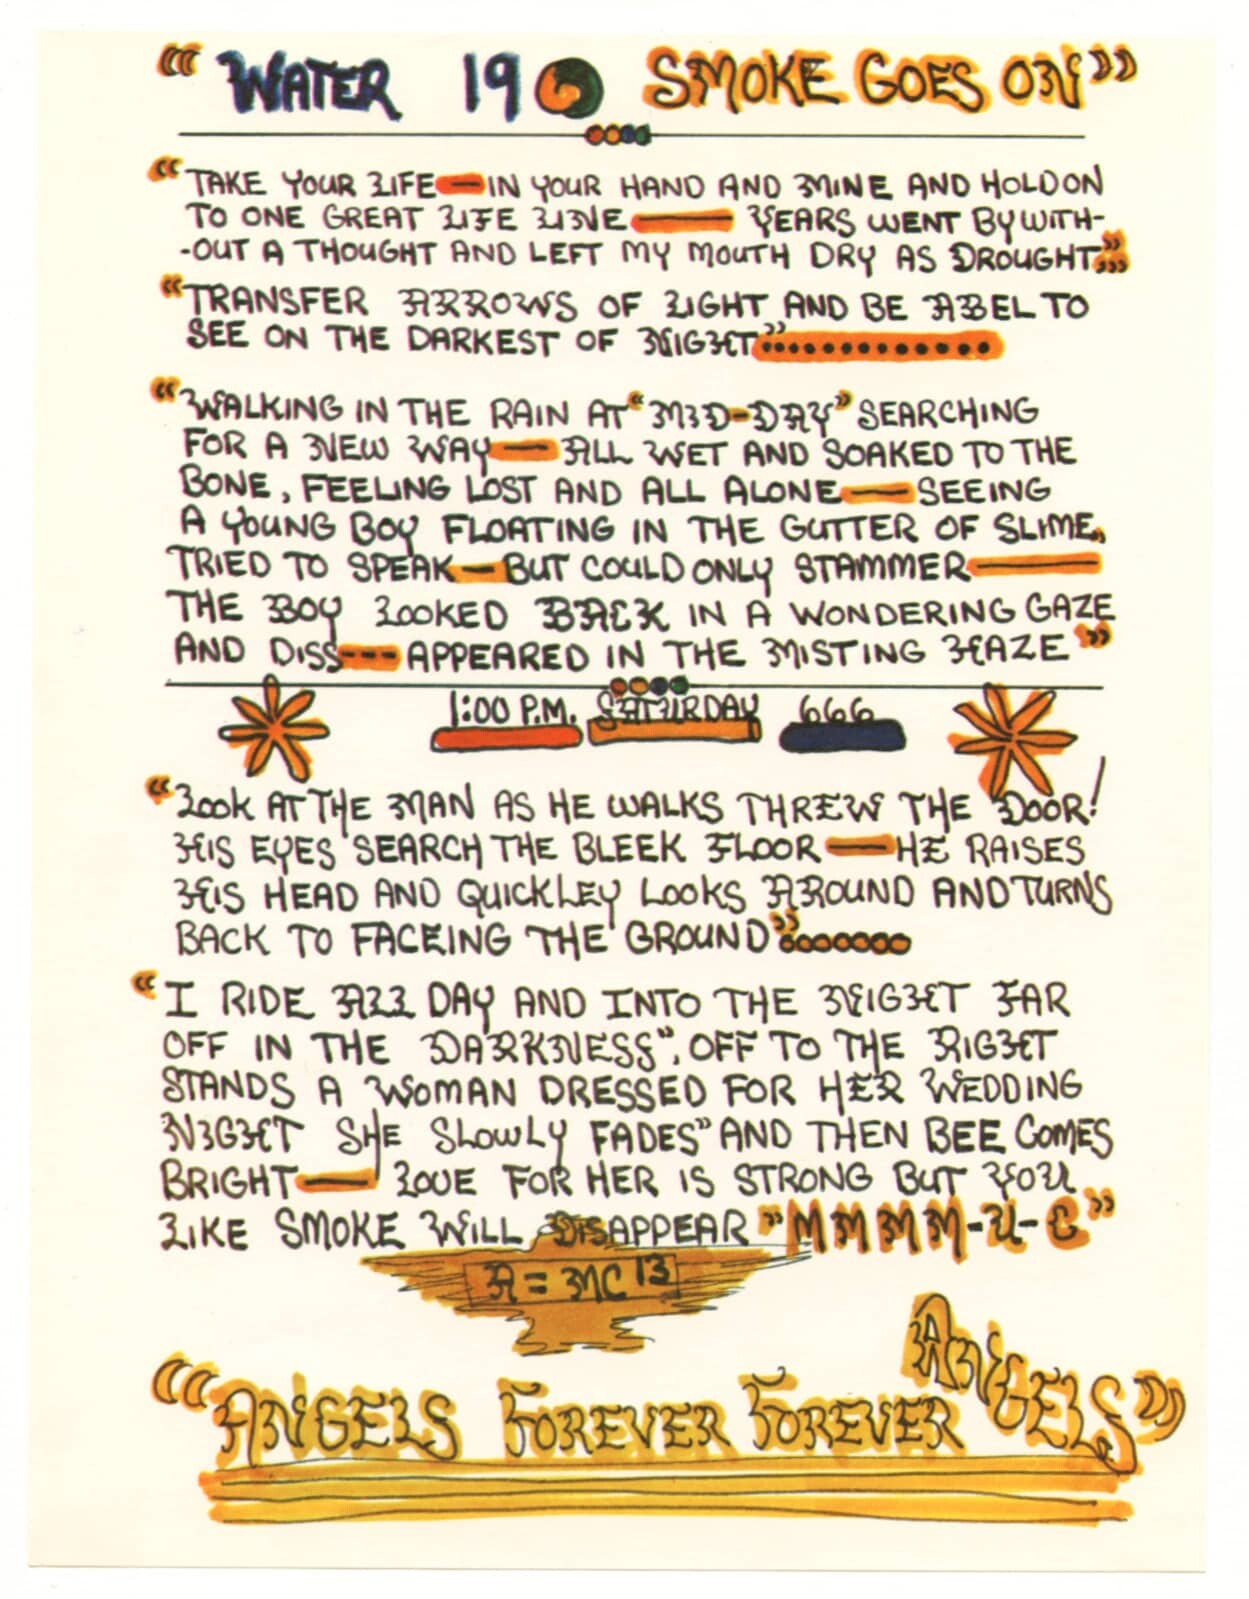 “WATER 19 SMOKE GOES ON”
“TAKE YOUR LIFE—IN YOUR HAND AND MINE AND HOLD ON
TO ONE GREAT LIFE LINE — YEARS WENT BY WITH-
-OUT A THOUGHT AND LEFT MY MOUTH DRY AS DROUGHT”
“TRANSFER ARROWS OF LIGHT AND BE ABEL TO
SEE ON THE DARKEST OF NIGHT”.............
“WALKING IN THE RAIN AT “MID-DAY” SEARCHING
FOR A NEW WAY — ALL WET AND SOAKED TO THE
BONE, FEELING LOST AND ALL ALONE — SEEING
A YOUNG BOY FLOATING IN THE GUTTER OF SLIME,
TRIED TO SPEAK — BUT COULD ONLY STAMMER —
THE BOY LOOKED BACK IN A WONDERING GAZE
AND DISS---APPEARED IN THE MISTING HAZE”
1:00 P.M. SATURDAY 666
“LOOK AT THE MAN AS HE WALKS THREW THE DOOR!
HIS EYES SEARCH THE BLEEK FLOOR — HE RAISES
HIS HEAD AND QUICKLEY LOOKS AROUND AND TURNS
BACK TO FACEING THE GROUND”ooooooo
“I RIDE ALL DAY AND INTO THE NEIGHT FAR
OFF IN THE DARKNESS”, OFF TO THE RIGHT
STANDS A WOMAN DRESSED FOR HER WEDDING
NIGHT SHE SLOWLY FADES” AND THEN BEE COMES
BRIGHT — LOVE FOR HER IS STRONG BUT YOU
LIKE SMOKE WILL DISAPPEAR ”MMMM-U-C”
A = MC 13
“ANGELS FOREVER FOREVER ANGELS”